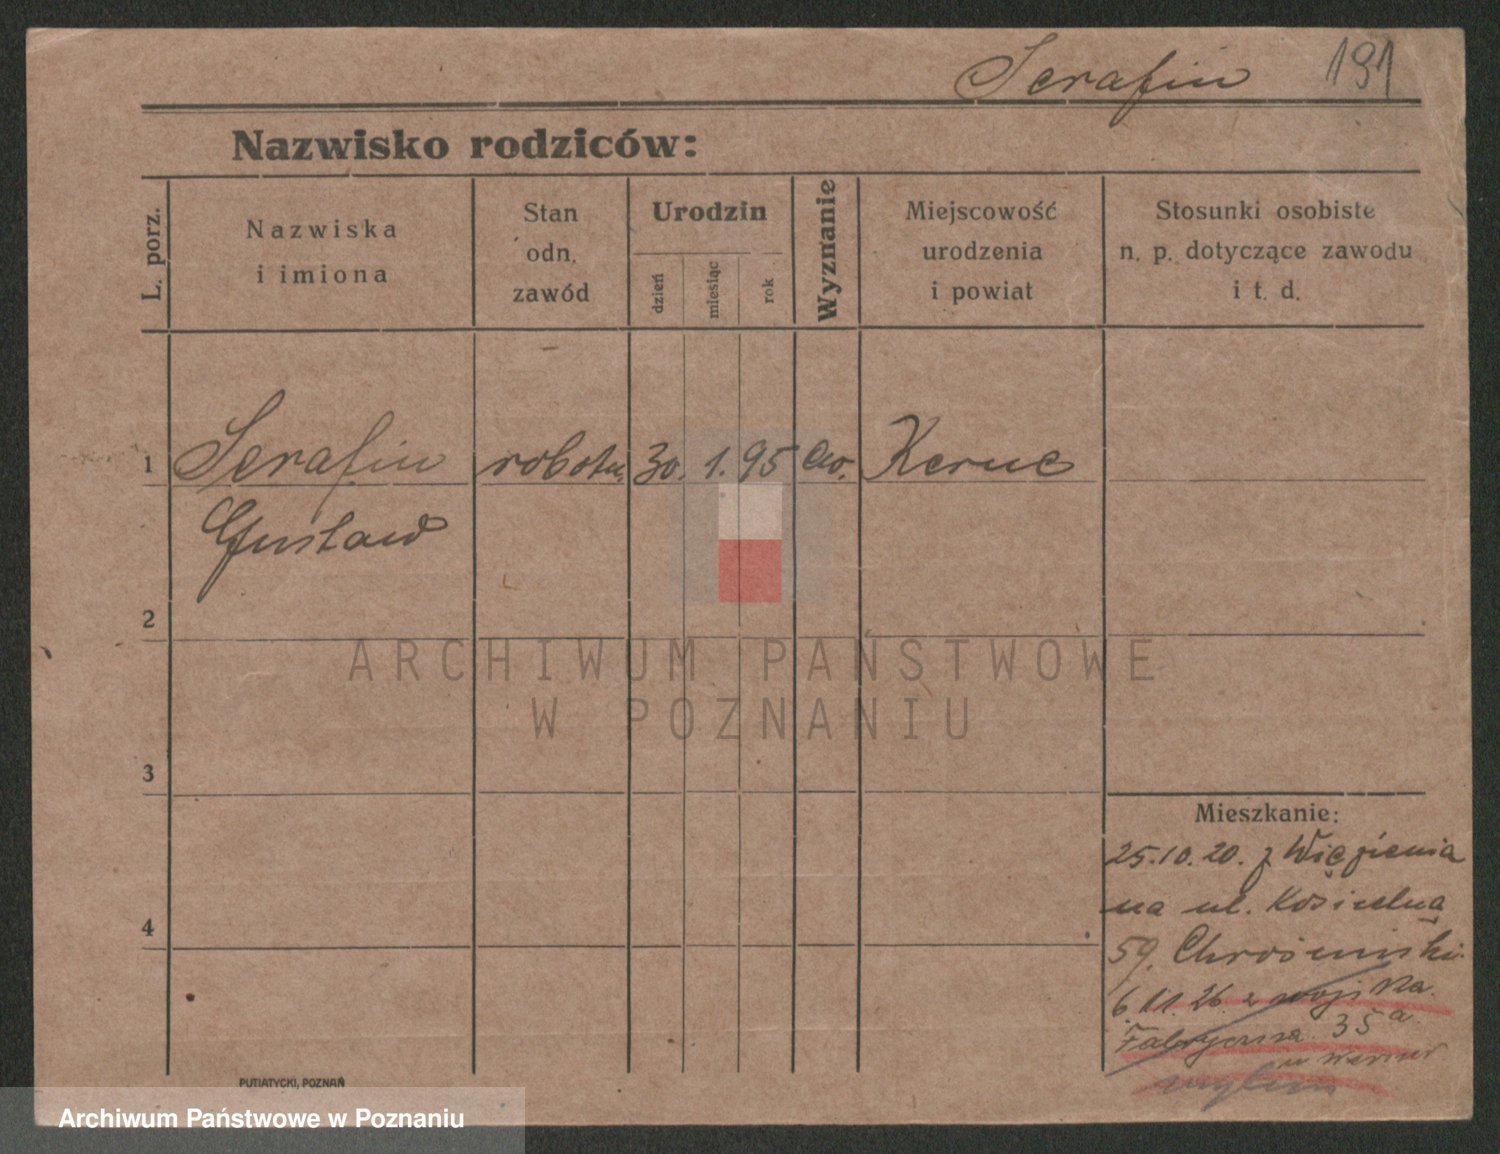 Serafin 191
Nazwisko rodziców:
L. porz.
Nazwiska
i imiona
Stan
odn.
zawód
Urodzin
dzień
miesiąc
rok
Wyznanie
Miejscowość
urodzenia
i powiat
Stosunki osobiste
n. p. dotyczące zawodu
i t. d.
1 Serafin robotn. 30. 1. 95 Kerne
Gustaw
2
ARCHIWUM PAŃSTWOWE
W POZNANIU
3
Mieszkanie:
25.10.20. z Więzienia
na ul. Kościelną
4
59.
6.11.26. z wojska.
Fabryczna 35a.
PUTIATYCKI, POZNAŃ
Archiwum Państwowe w Poznaniu